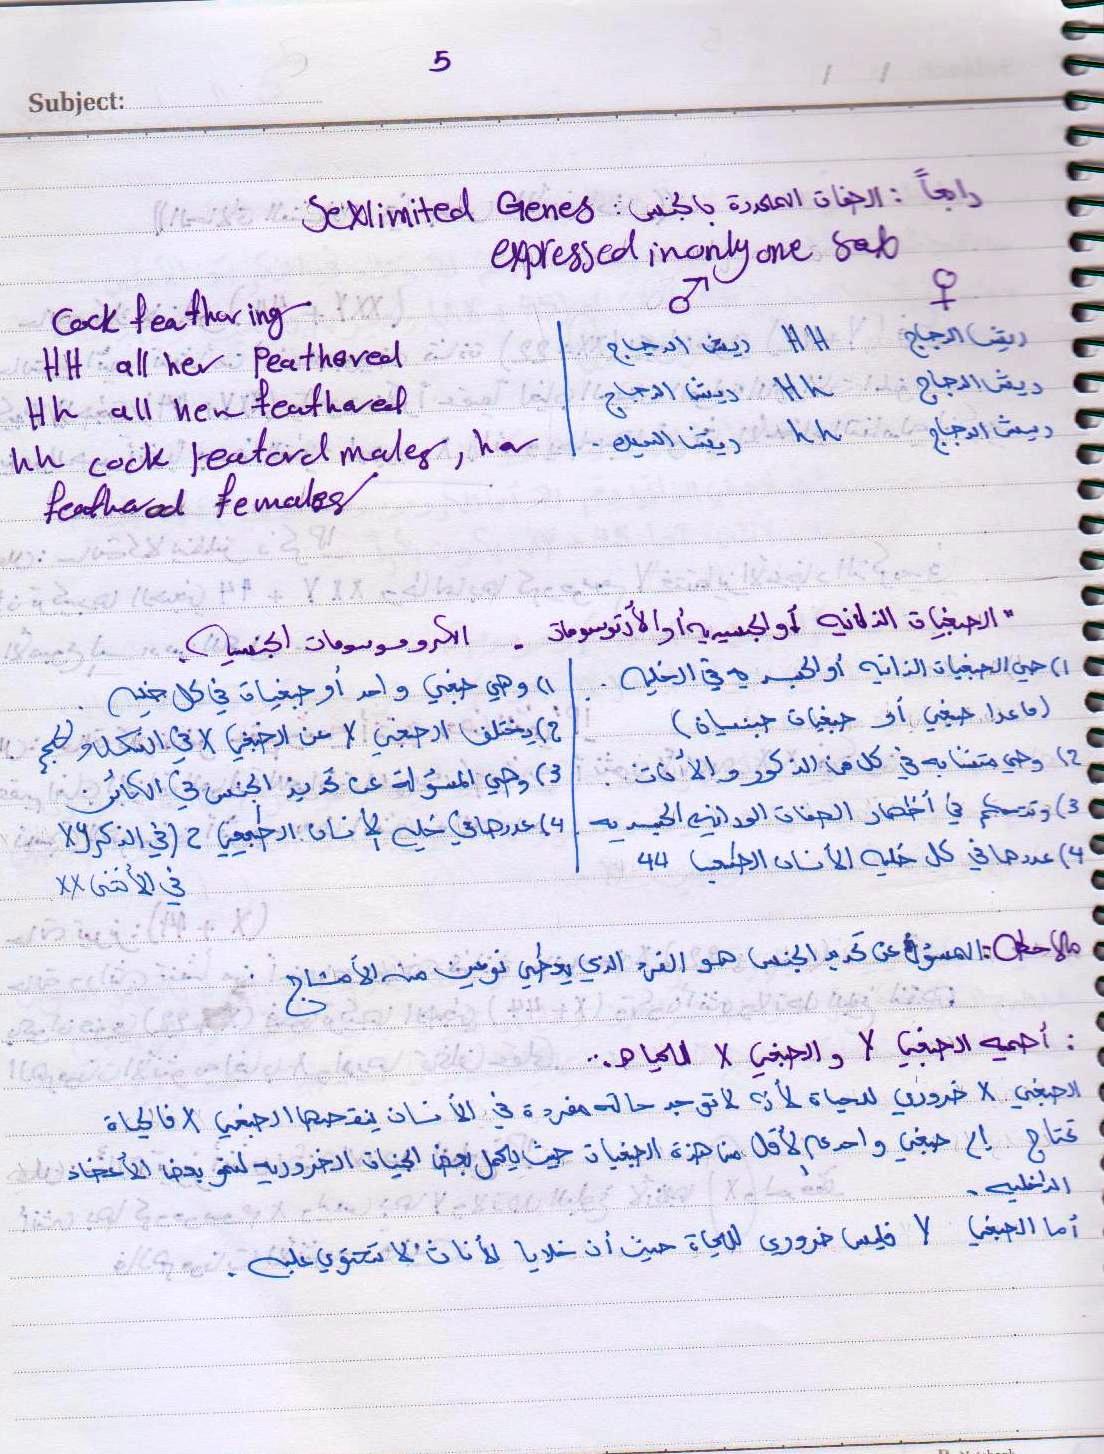 5
Subject:
رابعاً : الصفات المحددة بالجنس : Sexlimited Genes
expressed in only one sex
♂ ♀
Cock feathering
HH all hen feathered
Hh all hen feathared
hh cock featord males, hen
feathared females
ريش الدجاج HH ريش الدجاج
ريش الدجاج Hh ريش الدجاج
ريش الدجاج hh ريش الديك .
" الصبغيات الذاتيه أو الجسديه أو الأوتوسومات .
1) هي الصبغيات الذاتيه أو الجسديه في الخليه .
(ماعدا صبغي أو صبغيات جنسياة)
2) وهي متشابه في كل من الذكور والأناث .
3) وتتحكم في أظهار الصفات الوراثيه الجسديه
4) عددها في كل خليه الأنسان الطبيعيا 44
الكروموسومات الجنسيه .
1) وهي صبغي واحد أو صبغيات في كل خليه .
2) يختلف الصبغي Y عن الصبغي X في الشكل والحجم
3) وهي المسؤلة عن تحديد الجنس في الكائن
4) عددها في خليه الأنسان الطبيعي 2 (في الذكر XY
في الأنثى XX
ملاحظه : المسؤل عن تحديد الجنس هو الفرد الذي يعطي نوعين من الأمشاج .
: أهميه الصبغي Y والصبغي X للحياه ..
الصبغي X ضروري للحياة لأنه لا توجد حاله مفردة في الأنسان ينقصها الصبغي X فالحياة
تحتاج إلى صبغي واحد على الأقل من هذة الصبغيات حيث يحمل بعض الجينات الضروريه لنمو بعض الأعضاء
الداخليه .
أما الصبغي Y فليس ضروري للحياة حيث أن خلايا الأناث لا تحتوي عليه .